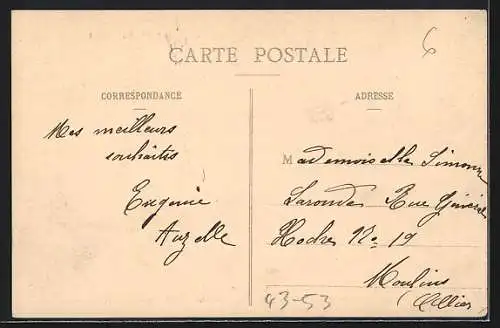 CARTE POSTALE
6
CORRESPONDANCE
ADRESSE
Mes meilleurs
souhaits
Eugénie
Auzelle
Mademoiselle Simone
Laronde Rue Général
Hoche No 19
Moulins
(Allier
43-53